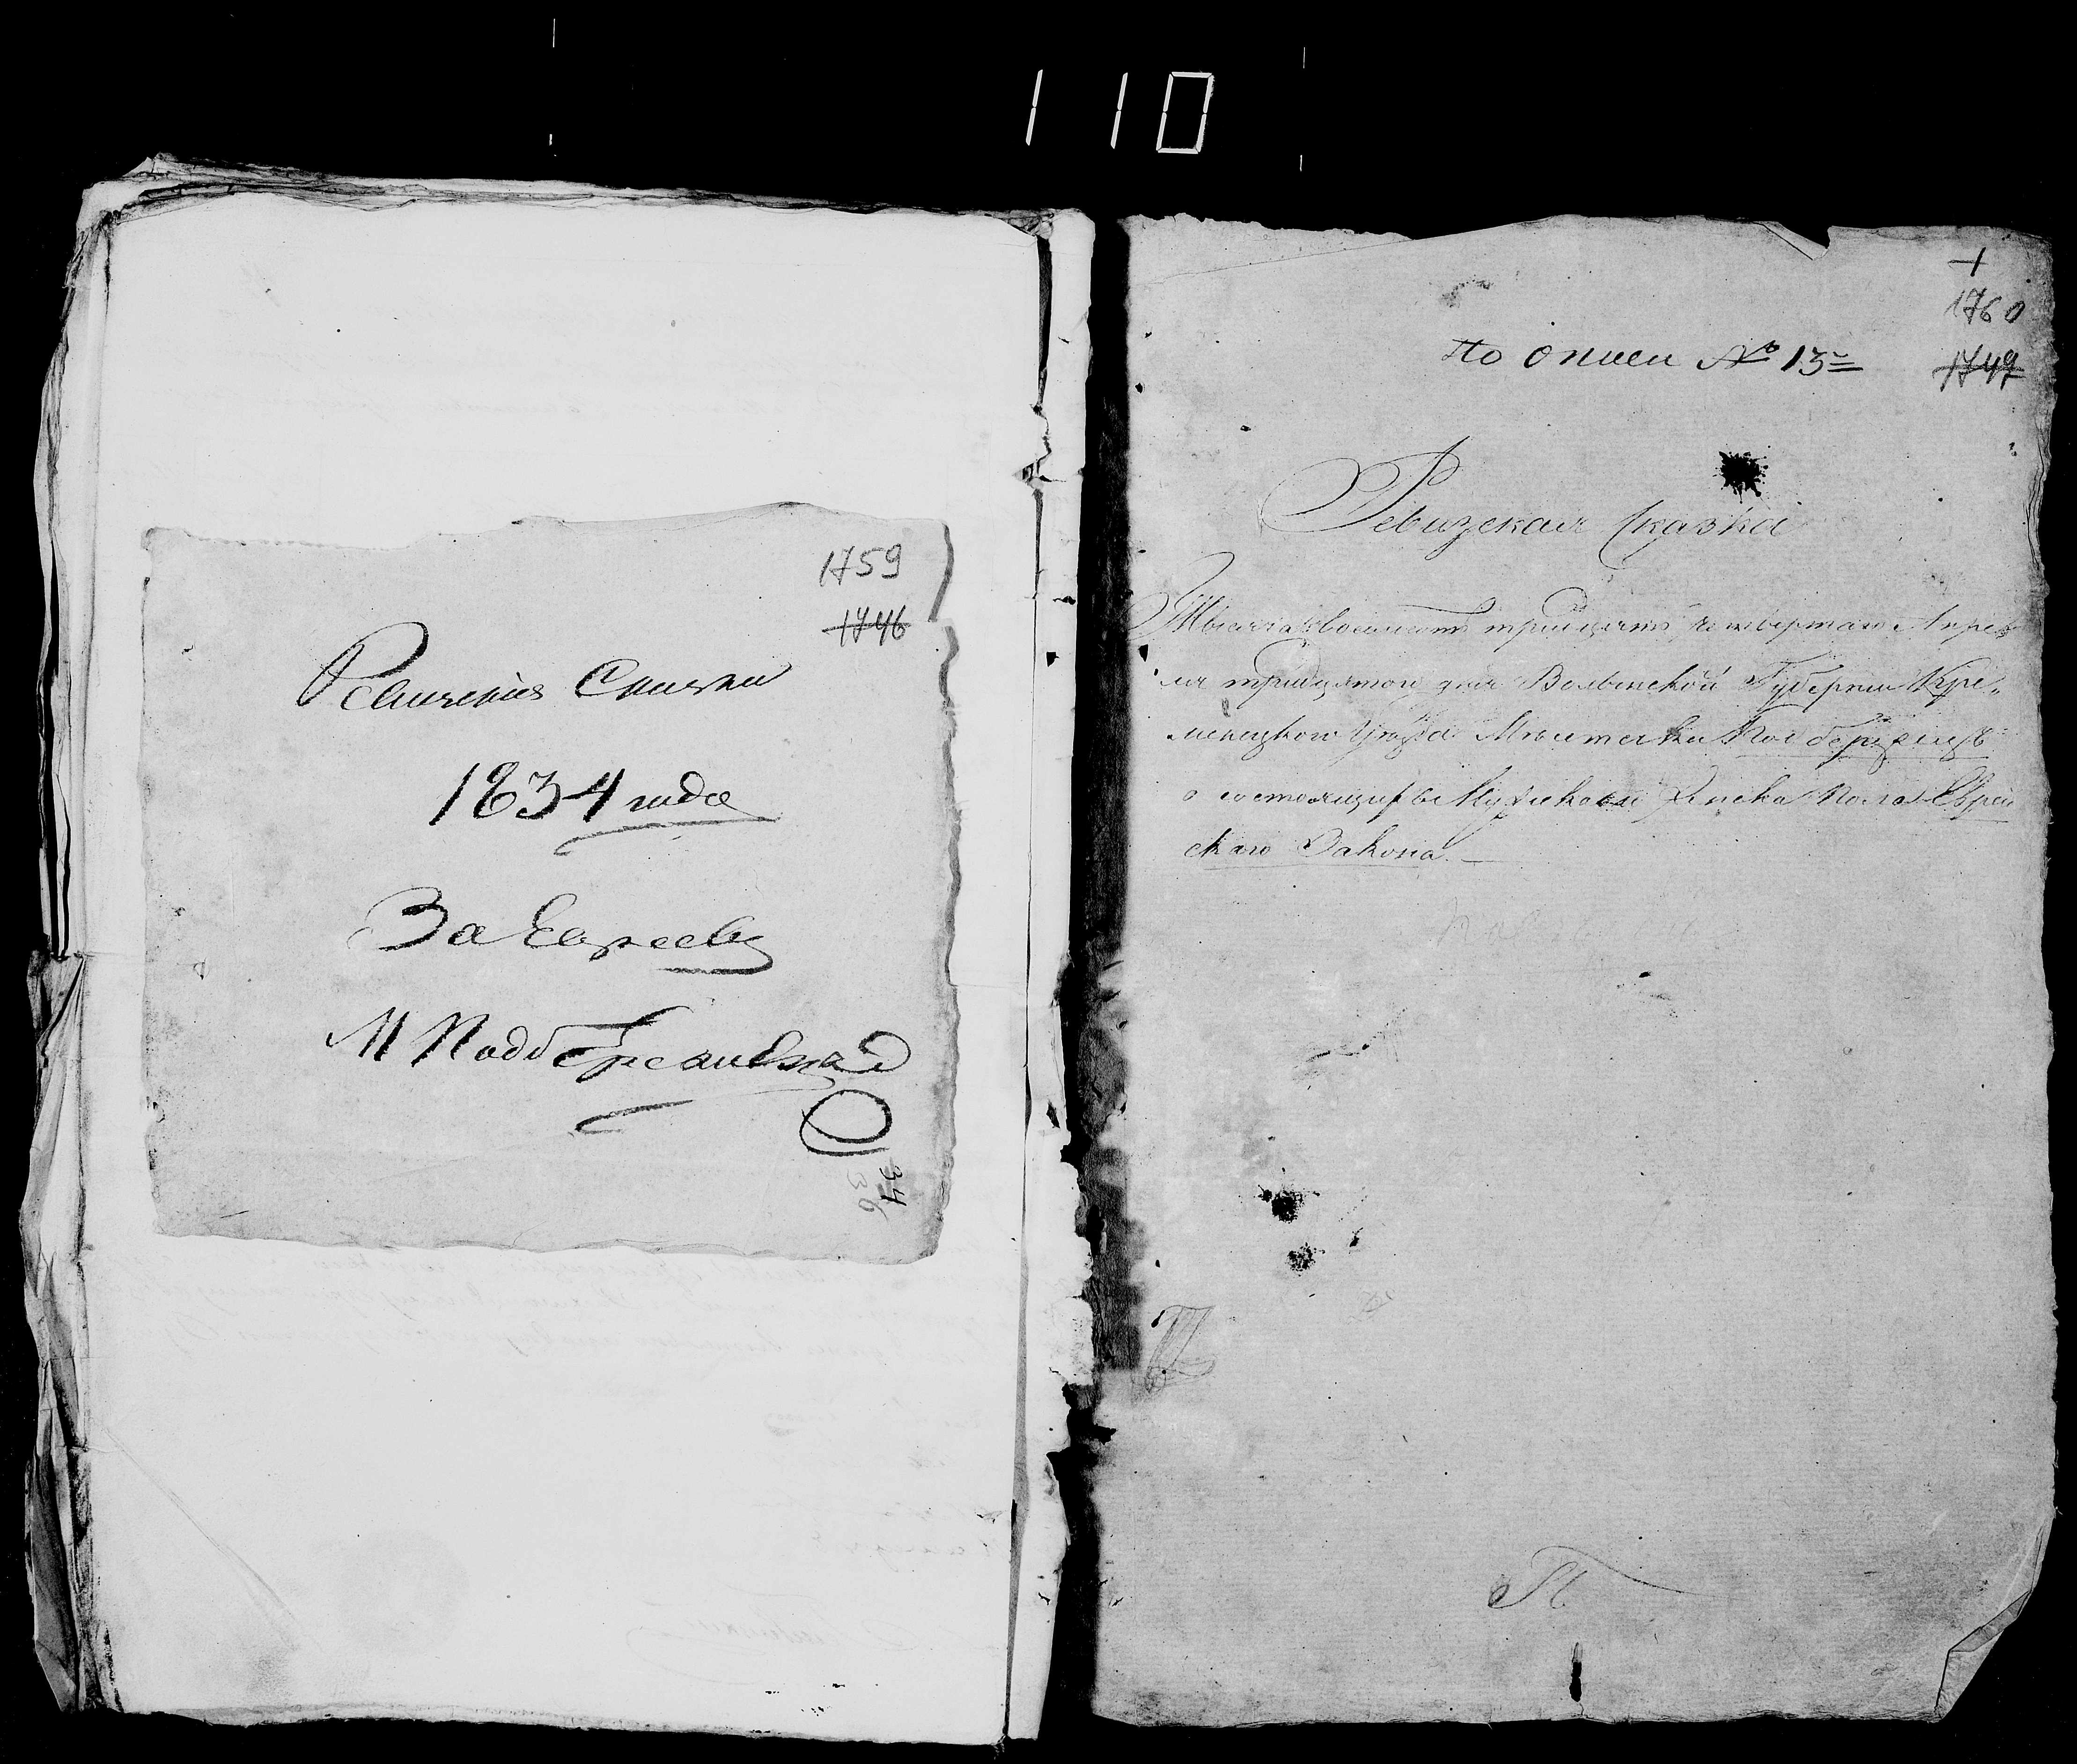 110
1759
1746
Ревизския Сказки
1834 года
За Евреевъ
М Подберезецкой
34
36
1760
1747
По описи № 13
Ревизская Сказка
Тысяча восемсотъ тридцать четвертаго Апре
ля тридцатого дня Волынской Губернии Кре„
менецкого Уезда Мѣстечка Подберезецъ
о состоящихъ Мужеска и Женска пола Еврей
скаго Закона.
П